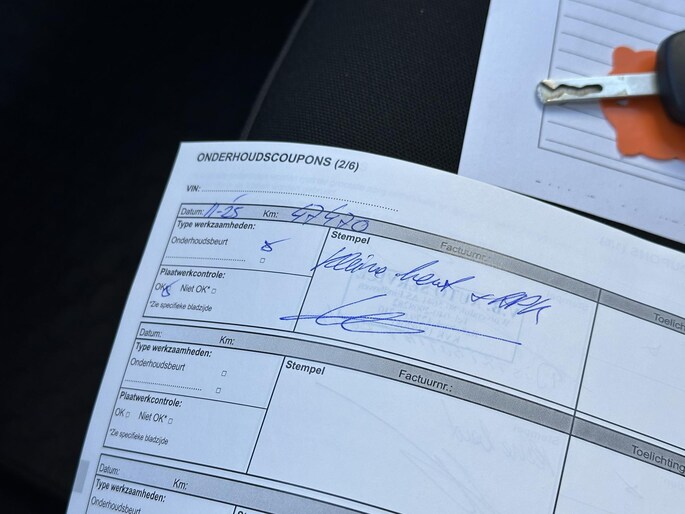 ONDERHOUDSCOUPONS (2/6)
VIN:
Datum: 11-25 Km: 47470
Factuurnr.:
Toelich
Type werkzaamheden:
Onderhoudsbeurt
Stempel
Kleine beurt + APK
Plaatwerkcontrole:
OK Niet OK*
*Zie specifieke bladzijde
Datum: Km:
Factuurnr.:
Toelichting
Type werkzaamheden:
Onderhoudsbeurt
Stempel
Plaatwerkcontrole:
OK Niet OK*
*Zie specifieke bladzijde
Datum: Km:
Type werkzaamheden:
Onderhoudsbeurt